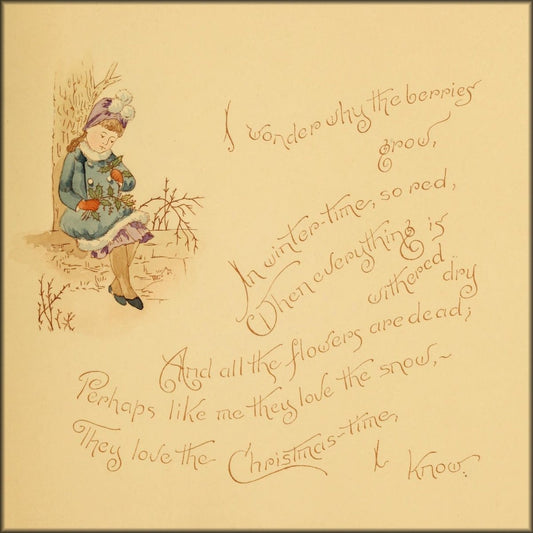 I wonder why the berries
grow,
In winter-time, so red,
When everything is
withered dry
And all the flowers are dead;
Perhaps like me they love the snow,~
They love the Christmas-time,
I know.